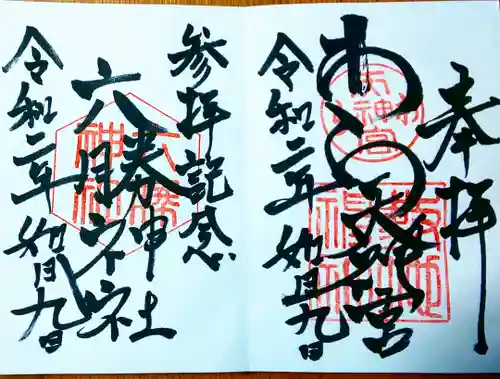 奉拝
わら天神宮
敷地神社
令和二年如月九日
参拝記念
六勝神社
令和二年如月九日